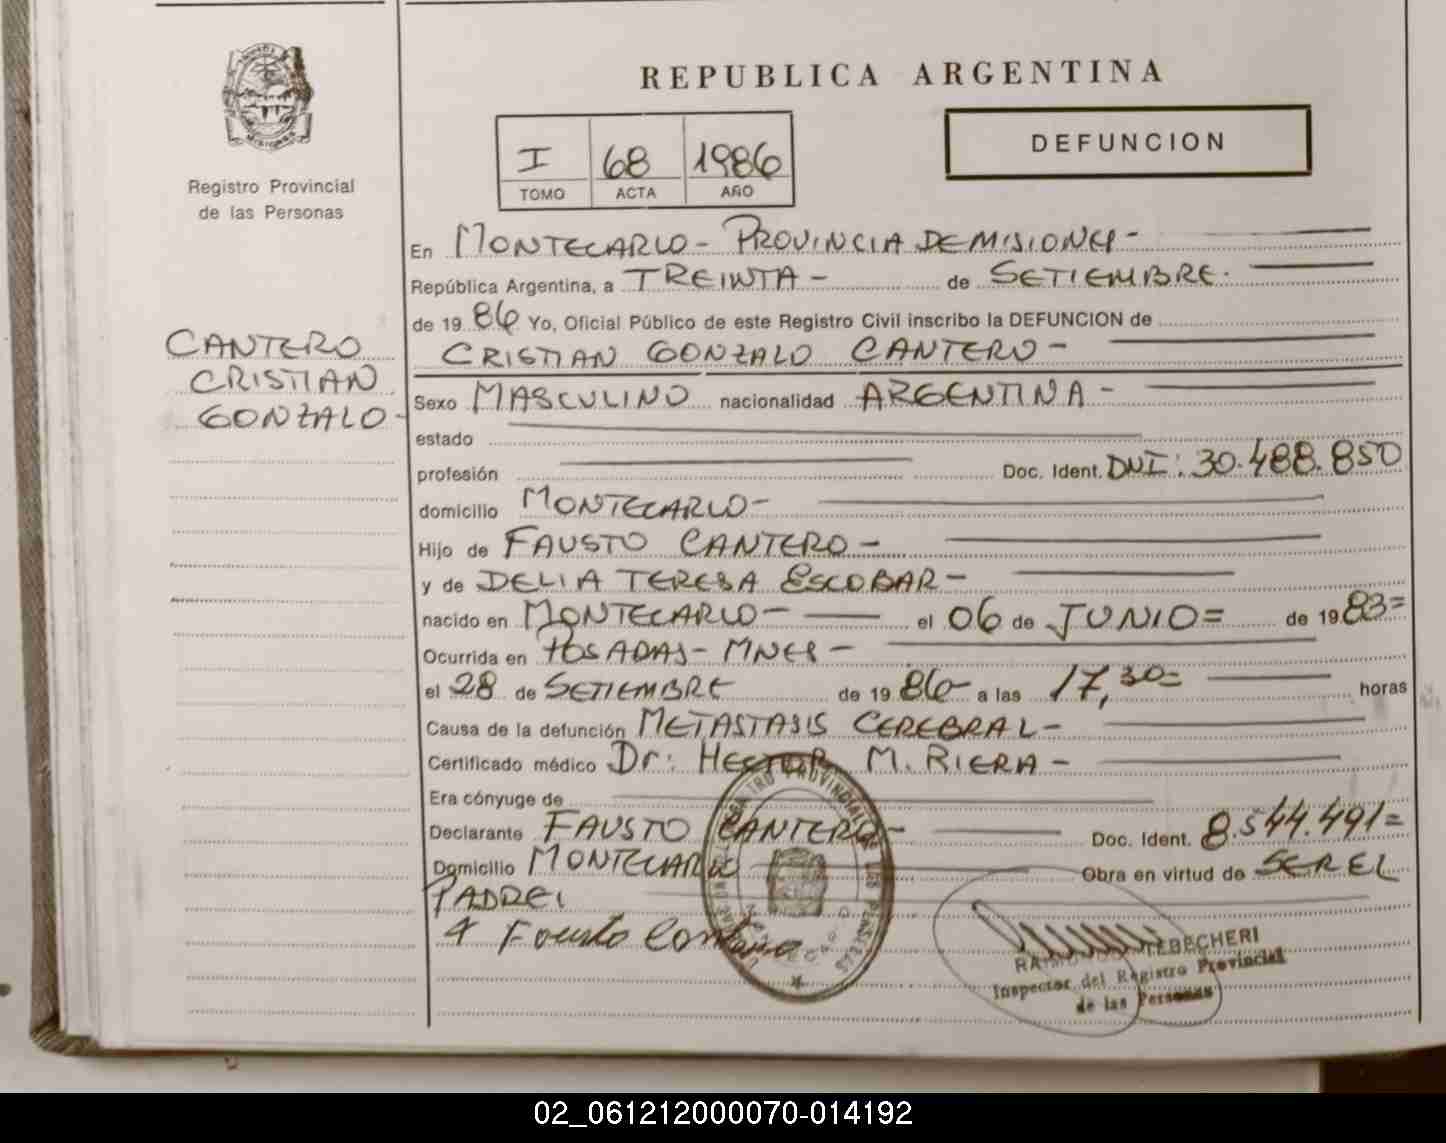 REPUBLICA ARGENTINA
DEFUNCION
Registro Provincial
de las Personas
I 68 1986
TOMO ACTA AÑO
CANTERO
CRISTIAN
GONZALO-
En MONTECARLO - PROVINCIA DE MISIONES -
República Argentina, a TREINTA - de SETIEMBRE.
de 19 86 Yo, Oficial Público de este Registro Civil inscribo la DEFUNCION de
CRISTIAN GONZALO CANTERO -
Sexo MASCULINO nacionalidad ARGENTINA -
estado
profesión Doc. Ident. DNI: 30.488.850
domicilio MONTECARLO -
Hijo de FAUSTO CANTERO -
y de DELIA TERESA ESCOBAR -
nacido en MONTECARLO - el 06 de JUNIO = de 19 83 =
Ocurrida en POSADAS - MNES -
el 28 de SETIEMBRE de 19 86 a las 17,30 = horas
Causa de la defunción METASTASIS CEREBRAL -
Certificado médico Dr: HECTOR M. RIERA -
Era cónyuge de
Declarante FAUSTO CANTERO - Doc. Ident. 8.544.491 =
Domicilio MONTECARLO Obra en virtud de SEREL
PADRE
Fausto Cantero
REGISTRO PROVINCIAL DE LAS PERSONAS
RAIMUNDO TEBECHERI
Inspector del Registro Provincial
de las Personas
02_061212000070-014192